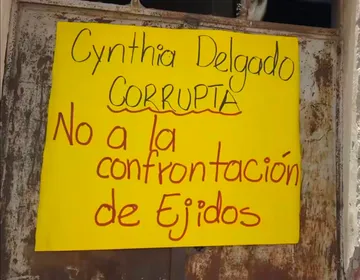 Cynthia Delgado
CORRUPTA
No a la
confrontación
de Ejidos